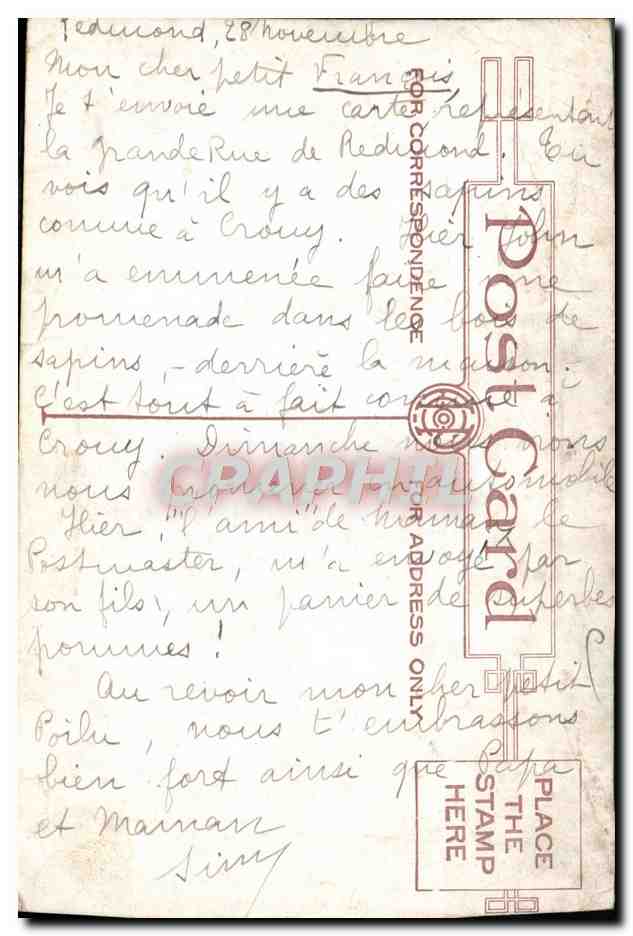 Redmond, 28 novembre
Mon cher petit François,
Je t'envoie une carte représentant
la grande Rue de Redmond. Tu
vois qu'il y a des sapins
comme à Crouy. Hier John
m'a emmenée faire une
promenade dans les bois de
sapins, - derrière la maison.
C'est tout à fait comme à
Crouy. Dimanche nous irons
nous promener en automobile
Hier, "l'ami" de Maman le
Postmaster, m'a envoyé par
son fils, un panier de superbes
pommes!
Au revoir mon cher petit
Poilu, nous t'embrassons
bien fort ainsi que Papa
et Maman
Simy
Post Card
FOR CORRESPONDENCE
FOR ADDRESS ONLY
PLACE
THE
STAMP
HERE
CPAPHIL